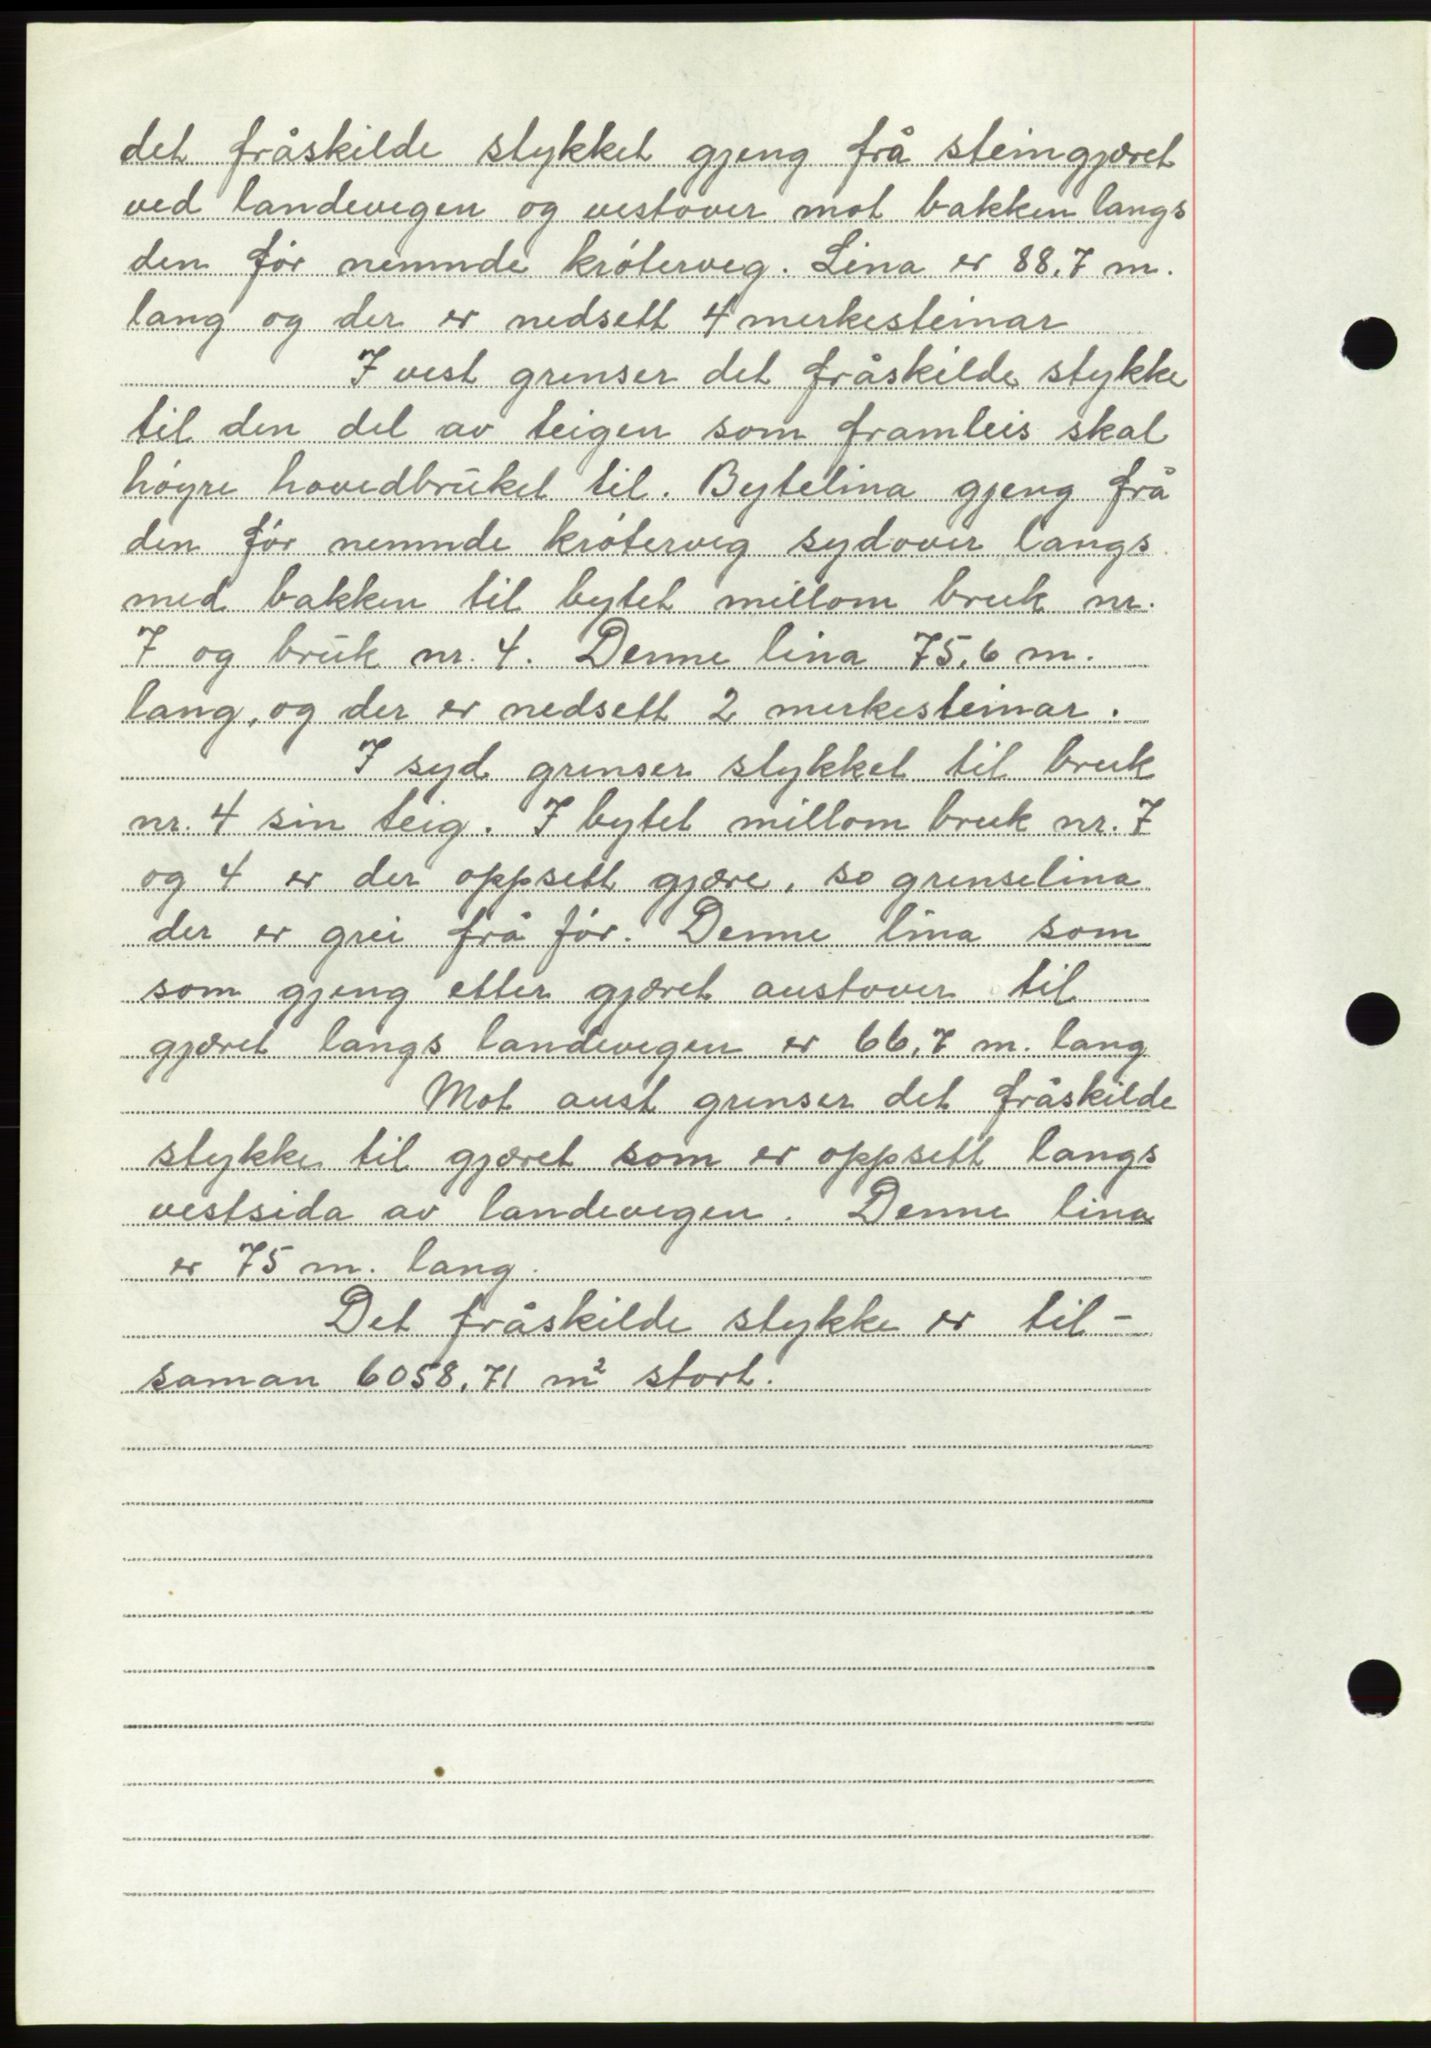 det fråskilde stykket gjeng frå steingjæret
ved landevegen og vestover mot bakken langs
den før nemnde krøterveg. Lina er 88,7 m.
lang og der er nedsett 4 merkesteinar
I vest grenser det fråskilde stykke
til den del av teigen som framleis skal
høyre hovedbruket til. Bytelina gjeng frå
den før nemnde krøterveg sydover langs
med bakken til bytet millom bruk nr.
7 og bruk nr. 4. Denne lina 75,6 m.
lang, og der er nedsett 2 merkesteinar.
I syd grenser stykket til bruk
nr. 4 sin teig. I bytet millom bruk nr. 7
og 4 er der oppsett gjære, so grenselina
der er grei frå før. Denne lina som
som gjeng etter gjæret austover til
gjæret langs landevegen er 66,7 m. lang
Mot aust grenser det fråskilde
stykke til gjæret som er oppsett langs
vestsida av landevegen. Denne lina
er 75 m. lang.
Det fråskilde stykke er til-
saman 6058,71 m² stort.